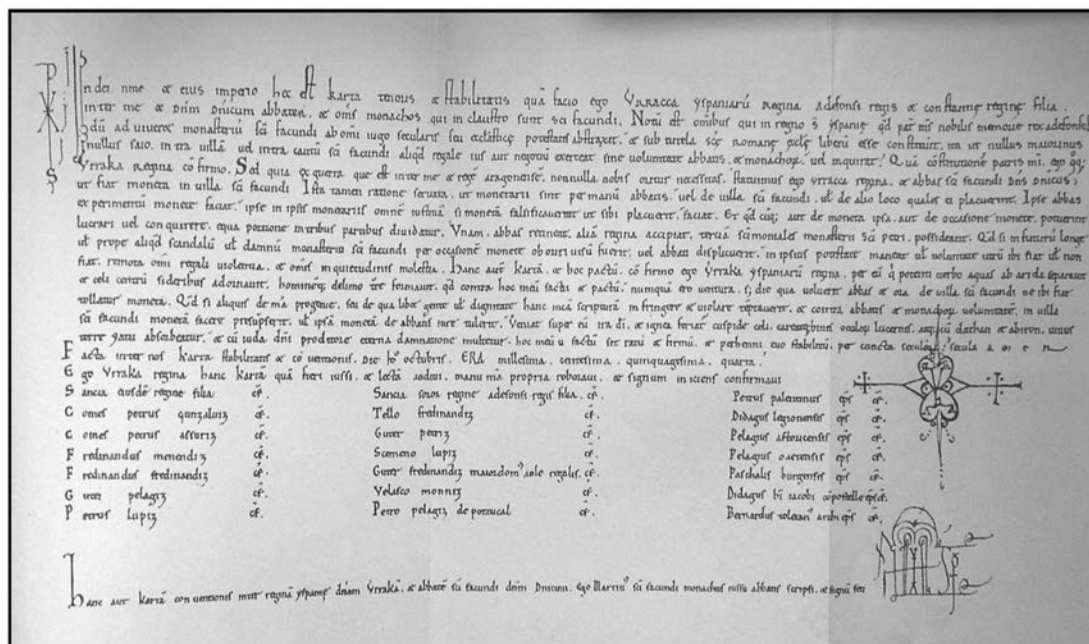 In dei nme & eius imperio hec est karta tenoris & stabilitatis quā facio ego Vrracca yspaniarū regina adefonsi regis & constantie regine filia.
inter me & dnm dnicum abbatem, & oms monachos qui in claustro sunt sci facundi. Notū est omibus qui in regno s yspanie qd pater mis nobilis memorie rex adefonsus
dū adviveret monasteriū sci facundi ab omi iugo secularis seu ecclastice potestatis abstraxit, & sub tutela sce romane eccle liberū esse constituit, ita ut nullus maiorinus
nullus saio, intra villā vel intra cautū sci facundi aliqd regale ius aut negotiū exerceat sine voluntate abbatis, & monachoꝝ vel inquirat. Quā cōstitutionē patris mi, ego qq;
Vrraka regina cōfirmo. Sed quia ex guerra que est inter me & regē aragonense, nonnulla nobis oritur necessitas, statuimus ego vrracca regina, & abbas sci facundi dns dnicus,
ut fiat moneta in villa sci facundi. Ista tamen ratione servata, ut monetarii sint per manū abbatis, vel de villa sci facundi, ut de alio loco quales ei placuerint. Ipse abbas
experimentū monete faciat, ipse in ipsis monetariis omnē iustitiā si monetā falsificaverint ut sibi placuerit, faciat. Et qd cūq; aut de moneta ipsa, aut de occasione monete, potuerint
lucrari vel conquirere, equa portione in tribus partibus dividatur. Vnam, abbas retineat, aliā regina accipiat, terciā scimoniales monasterii sci petri, possideant. Qd si in futurū longe
ut prope aliqd scandalū ut damnū monasterio sci facundi per occasionē monete obortū visū fuerit, vel abbati displicuerit, in ipsius potestate maneat ut voluntate utrū ibi fiat ut non
fiat, remota omi regali violentia, & omis inquietudinis molestia. Hanc autē kartā, & hoc pactū, cō firmo ego Vrraka yspaniarū regina, per eū q potenti verbo aquas ab arida separavit
& celi centrū sideribus adornavit, hominēq; de limo tre formavit, qd contra hoc mei facti & pactū, numquā ero ventura, s; die qua voluerit abbas & ota de villa sci facundi ne ibi fiat
tollatur moneta. Qd si aliquis de mā progenie, seu de qua libet gente ut dignitate hanc meā scripturā infringere & violare teptaverit, & contra abbatis & monachoꝝ voluntatē, in villa
sci facundi monetā facere presupserit, ut ipsā monetā de abbatis iure tulerit, Veniat super eū ira di, & ignea feriat cuspide celi, careatq; binis oculoꝝ lucernis, atq; cū dathan & abiron, vivus
terre hiatu absorbeatur, & cū iuda dni proditore eterna damnatione multetur, hoc meū factū sit ratū & firmū, & perhenni evo stabilitū, per cuncta seculoꝝ secula a m e n
Facta inter nos karta stabilitatis & cō ventionis. Die Iō octubris. ERA millesima, centesima, quinquagesima, quarta.
Ego Vrraka regina hanc kartā quā fieri iussi, & lectā audivi, manu mā propria roboravi, & signum iniciens confirmavi
Sancia eiusdē regine filia cf. Sancia soror regine adefonsi regis filia. cf. Petrus palentinus eps cf.
Comes petrus gunzalviz cf. Tello fredinandiz cf. Didagus legionensis eps cf.
Comes petrus assuriz cf. Guter petriz cf. Pelagius astoricensis eps cf.
Fredinandus menendiz cf. Scemeno lupiz cf. Pelagius ovetensis eps cf.
Fredinandus fredinandiz cf. Guter fredinandiz maiordom' aule regalis. cf. Paschalis burgensis eps cf.
Guter pelagiz cf. Velasco monniz cf. Didagus bti iacobi cōpostelle eps cf.
Petrus lupiz cf. Petro pelagiz de portucal cf. Bernardus toletan' archieps cf.
Hanc autē kartā conventionis inter reginā yspanie dnam Vrrakā, & abbatē sci facundi dnm Dnicum. Ego Martin' sci facundi monachus iussu abbatis scripsi, & signū feci